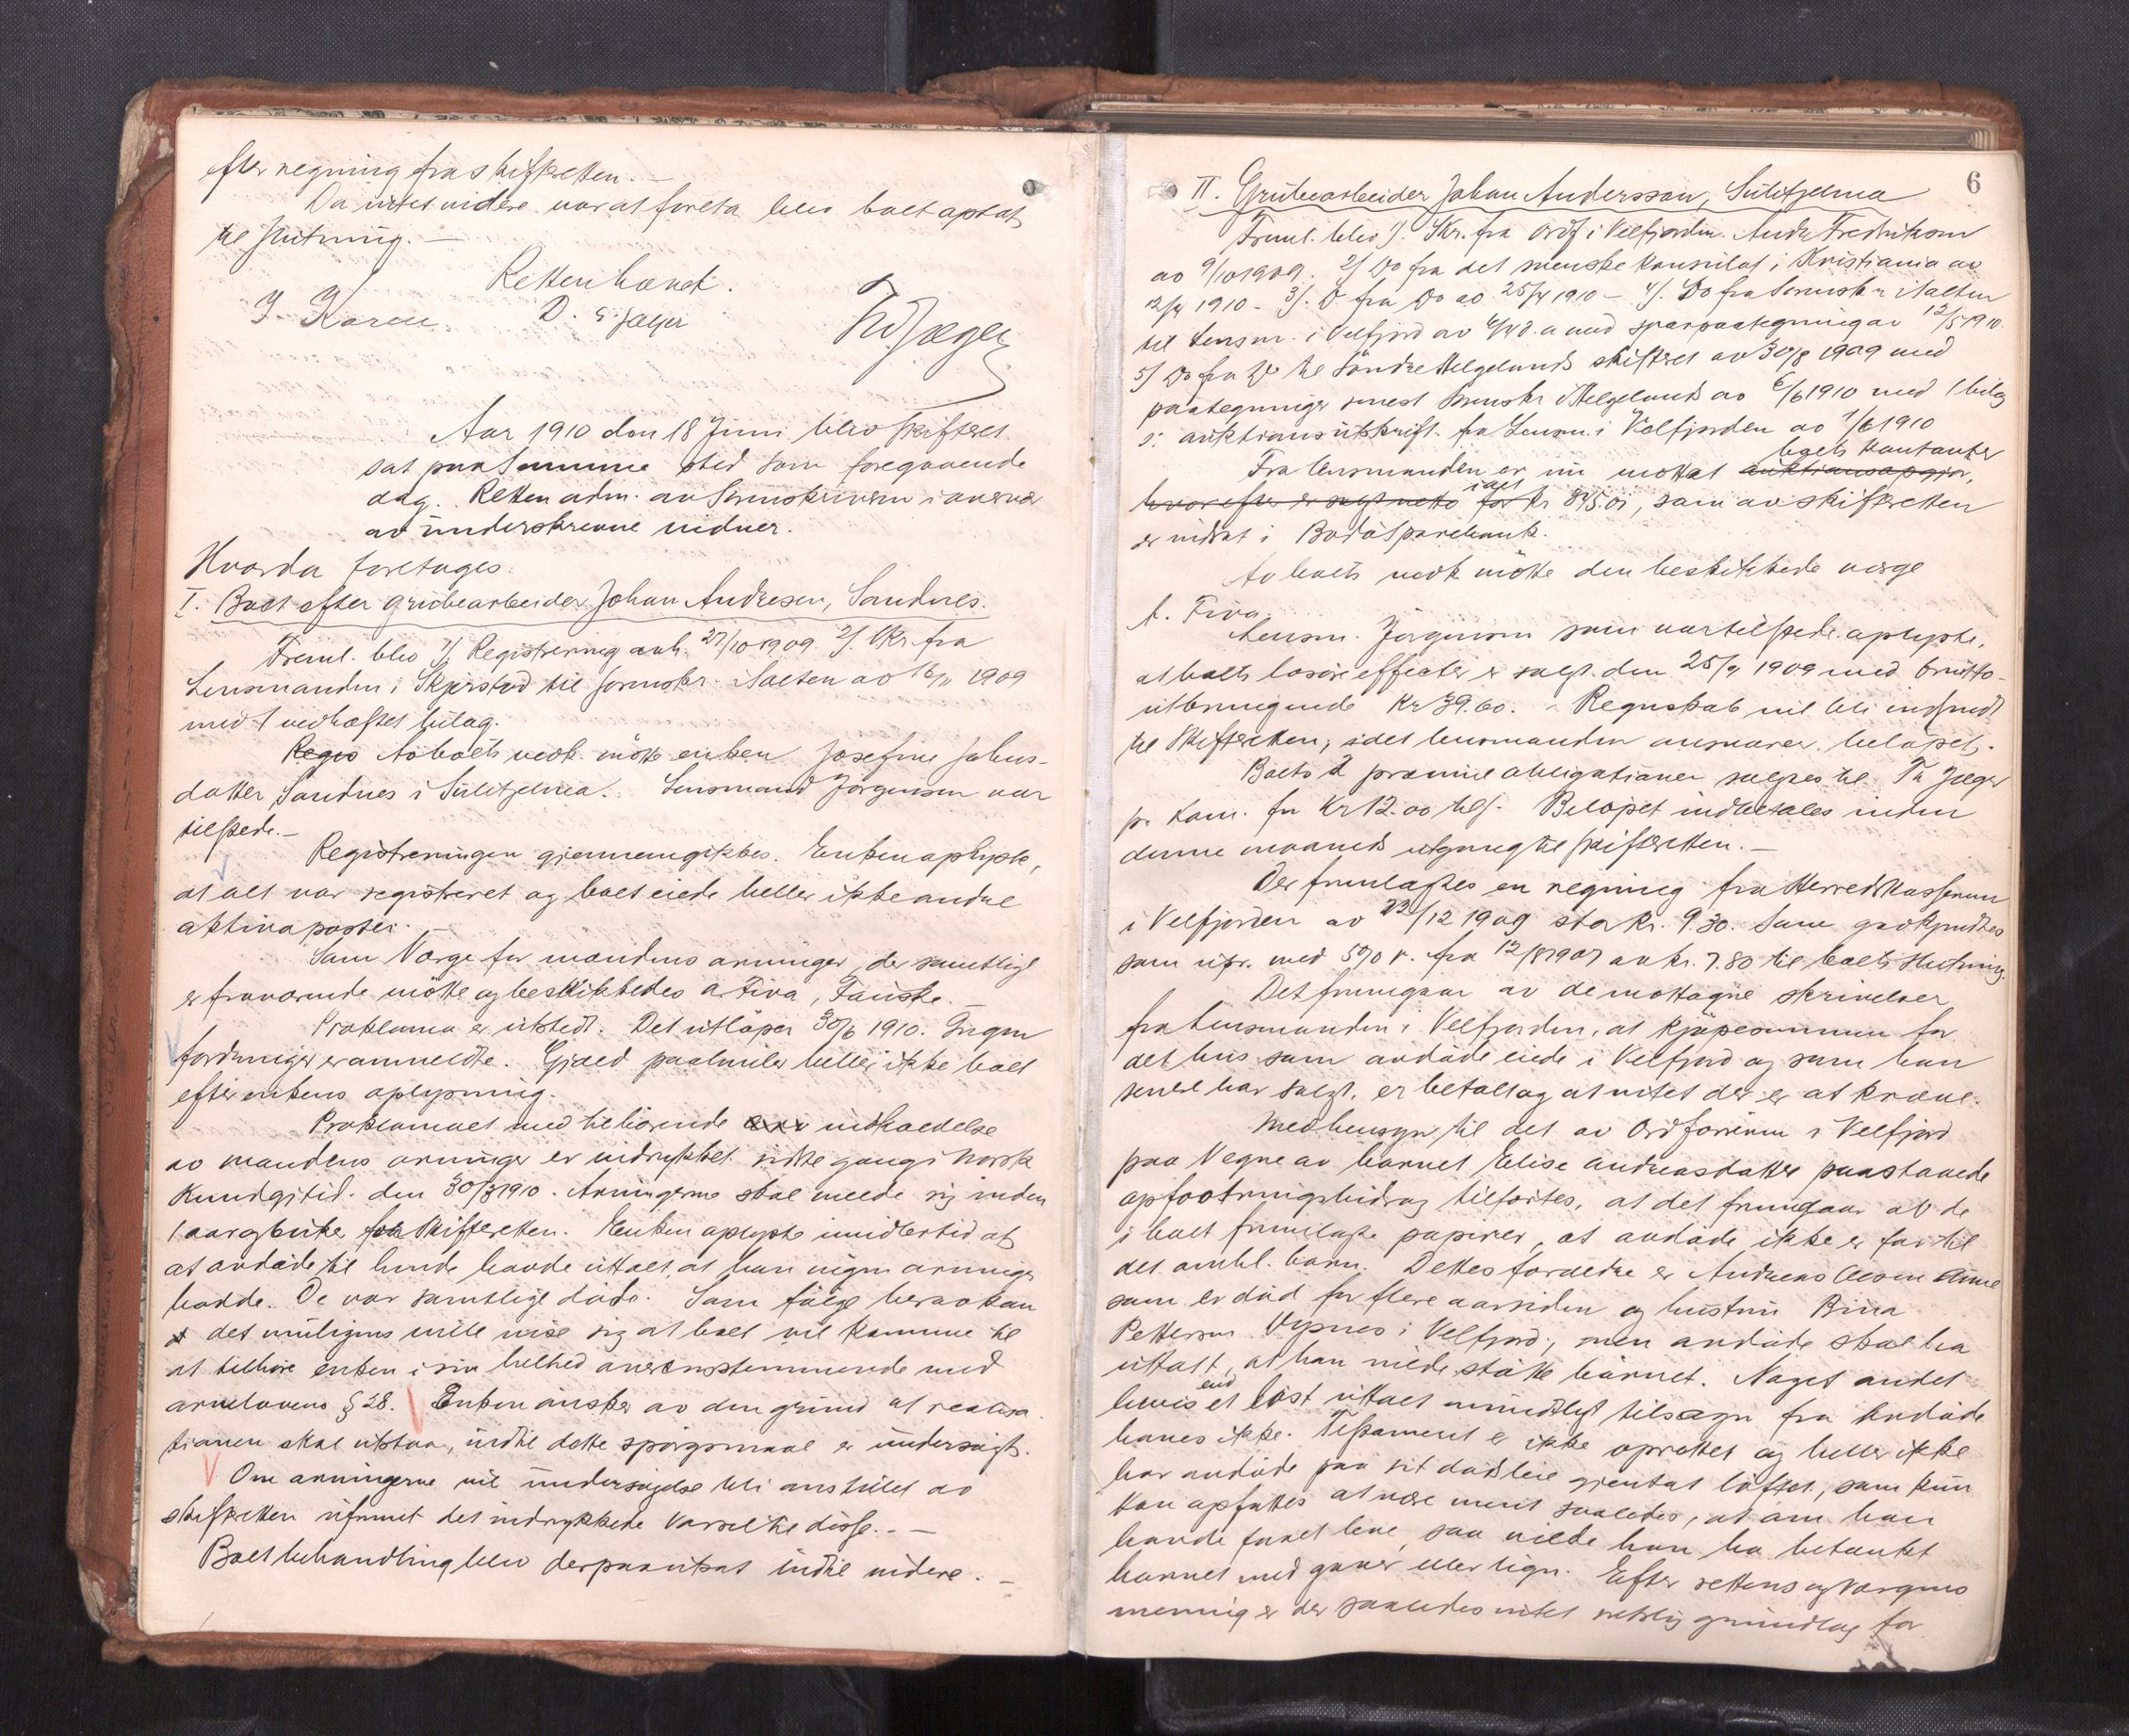 efter regning fra skifteretten. —
Da intet videre var at foreta blev boet optat
til slutning. —
Retten hævet.
J. Koren D. S. Jæger Th Jæger
Aar 1910 den 18 Juni blev skifteret
sat paa samme sted som foregaaende
dag. Retten adm. av Sorenskriveren i overvær
av underskrevne vidner.
Hvorda foretages:
I. Boet efter grubearbeider Johan Andresen, Sandnes.
Freml. blev 1/ Registrering avh. 27/10 1909 2/. Skr. fra
Lensmanden i Skjerstad til sorenskr. i Salten av 16/11 1909
med 1 vedhæftet bilag.
Regis Av boets vedk. mötte enken Josefine Johns-
datter Sandnes i Sulitjelma. Lensmand Jörgensen var
tilstede. —
Registreringen gjennemgikkes. Enken oplyste,
at alt var registreret og boet eiede heller ikke andre
aktivaposter.
Som Værge for mandens arvinger, der samtlige
er fraværende mötte og beskikkedes A. Fiva, Fauske. —
Proklama er utstedt. Det utlöper 30/6 1910. Ingen
fordringer er anmeldte. Gjæld paahviler heller ikke boet
efter enkens oplysning.
Proklamaet med tilhörende indkaldelse
av mandens arvinger er indrykket sidste gang i Norsk
Kundgj.tid. den 30/3 1910. Arvingerne skal melde sig inden
1 aar og 6 uker for Skifteretten. Enken oplyste imidlertid at
at avdöde til hende havde uttalt, at han ingen arvinger
hadde. De var samtlige döde. Som fölge herav kan
det muligens ville vise sig at boet vil komme til
at tilhöre enken i sin helhed overensstemmende med
arvelovens § 28. Enken önsker av den grund at realisa-
tionen skal utstaa, indtil dette spörgsmaal er undersögt.
Om arvingerne vil undersögelse bli anstillet av
skifteretten uformet det indrykkede varsel til disse. —
Boets behandling blev derpaa utsat indtil videre. —
6
II. Grubearbeider Johan Andersson, Sulitjelma
Freml. blev 1/. Skr. fra Ordf. i Velfjorden Andr. Fredriksen
av 9/10 1909. 2/ Do fra det svenske konsulat i Kristiania av
12/4 1910 - 3/. D fra Do av 25/4 1910 - 4/. Do fra Sorenskr. i Salten
til Lensm. i Velfjord av 4/5 d.a. med svarpaategning av 12/5 1910.
5/ Do fra Do til Söndre Helgelands skifteret av 30/8 1909 med
paategninger senest Sorenskr i Helgeland av 6/6 1910 med 1 bilag
ɔ: auktionsutskrift fra Lensm. i Velfjorden av 1/6 1910
boets kontanter
Fra lensmanden er nu mottat auktionsopgjör,
hvorefter er solgt netto for ialt kr 845.01, som av skifteretten
er indsat i Bodö Sparebank.
Av boets vedk mötte den beskikkede værge
A. Fiva.
Lensm. Jörgensen som var tilstede oplyste,
at boets lösöreeffecter er solgt den 25/9 1909 med brutto-
utbringende Kr 39.60. Regnskab vil bli indsendt
til Skifteretten, idet lensmanden ansvarer belöpet.
Boets 2 præmieobligationer sælges til Th Jæger
pr. kom. for Kr 12.00 tils. Belöpet indbetales inden
denne maaneds utgang til skifteretten. —
Der fremlagdes en regning fra Herredskasseren
i Velfjorden av 23/12 1909 stor kr. 9.30. Samme godkjendtes
som upr. med 5% r. fra 12/8 1907 av kr. 7.80 til boets slutning.
Det fremgaar av de mottagne skrivelser
fra Lensmanden i Velfjorden, at kjöpesummen for
det hus som avdöde eiede i Velfjord og som han
senere har solgt, er betalt og at intet der er at kræve.
Med hensyn til det av Ordföreren i Velfjord
paa Vegne av barnet Elise Andreasdatter paastaaede
opfostringsbidrag tilförtes, at det fremgaar av de
i boet fremlagte papirer, at avdöde ikke er far til
det omhl. barn. Dettes forældre er Andreas Olsen
som er död for flere aar siden og hustru Bina
Pettersen Vysnes i Velfjord, men avdöde skal ha
uttalt, at han vilde stötte barnet. Noget andet
bevis end et löst uttalt mundtligt tilsagn fra avdöde
haves ikke. Testament er ikke oprettet og heller ikke
har avdöde paa sit dödsleie gjentat löftet, som kun
kan opfattes at være ment saaledes, at om han
havde faaet leve, saa vilde han ha betænkt
barnet med gaver eller lign. Efter rettens og Værgens
mening er der saaledes intet retslig grundlag for